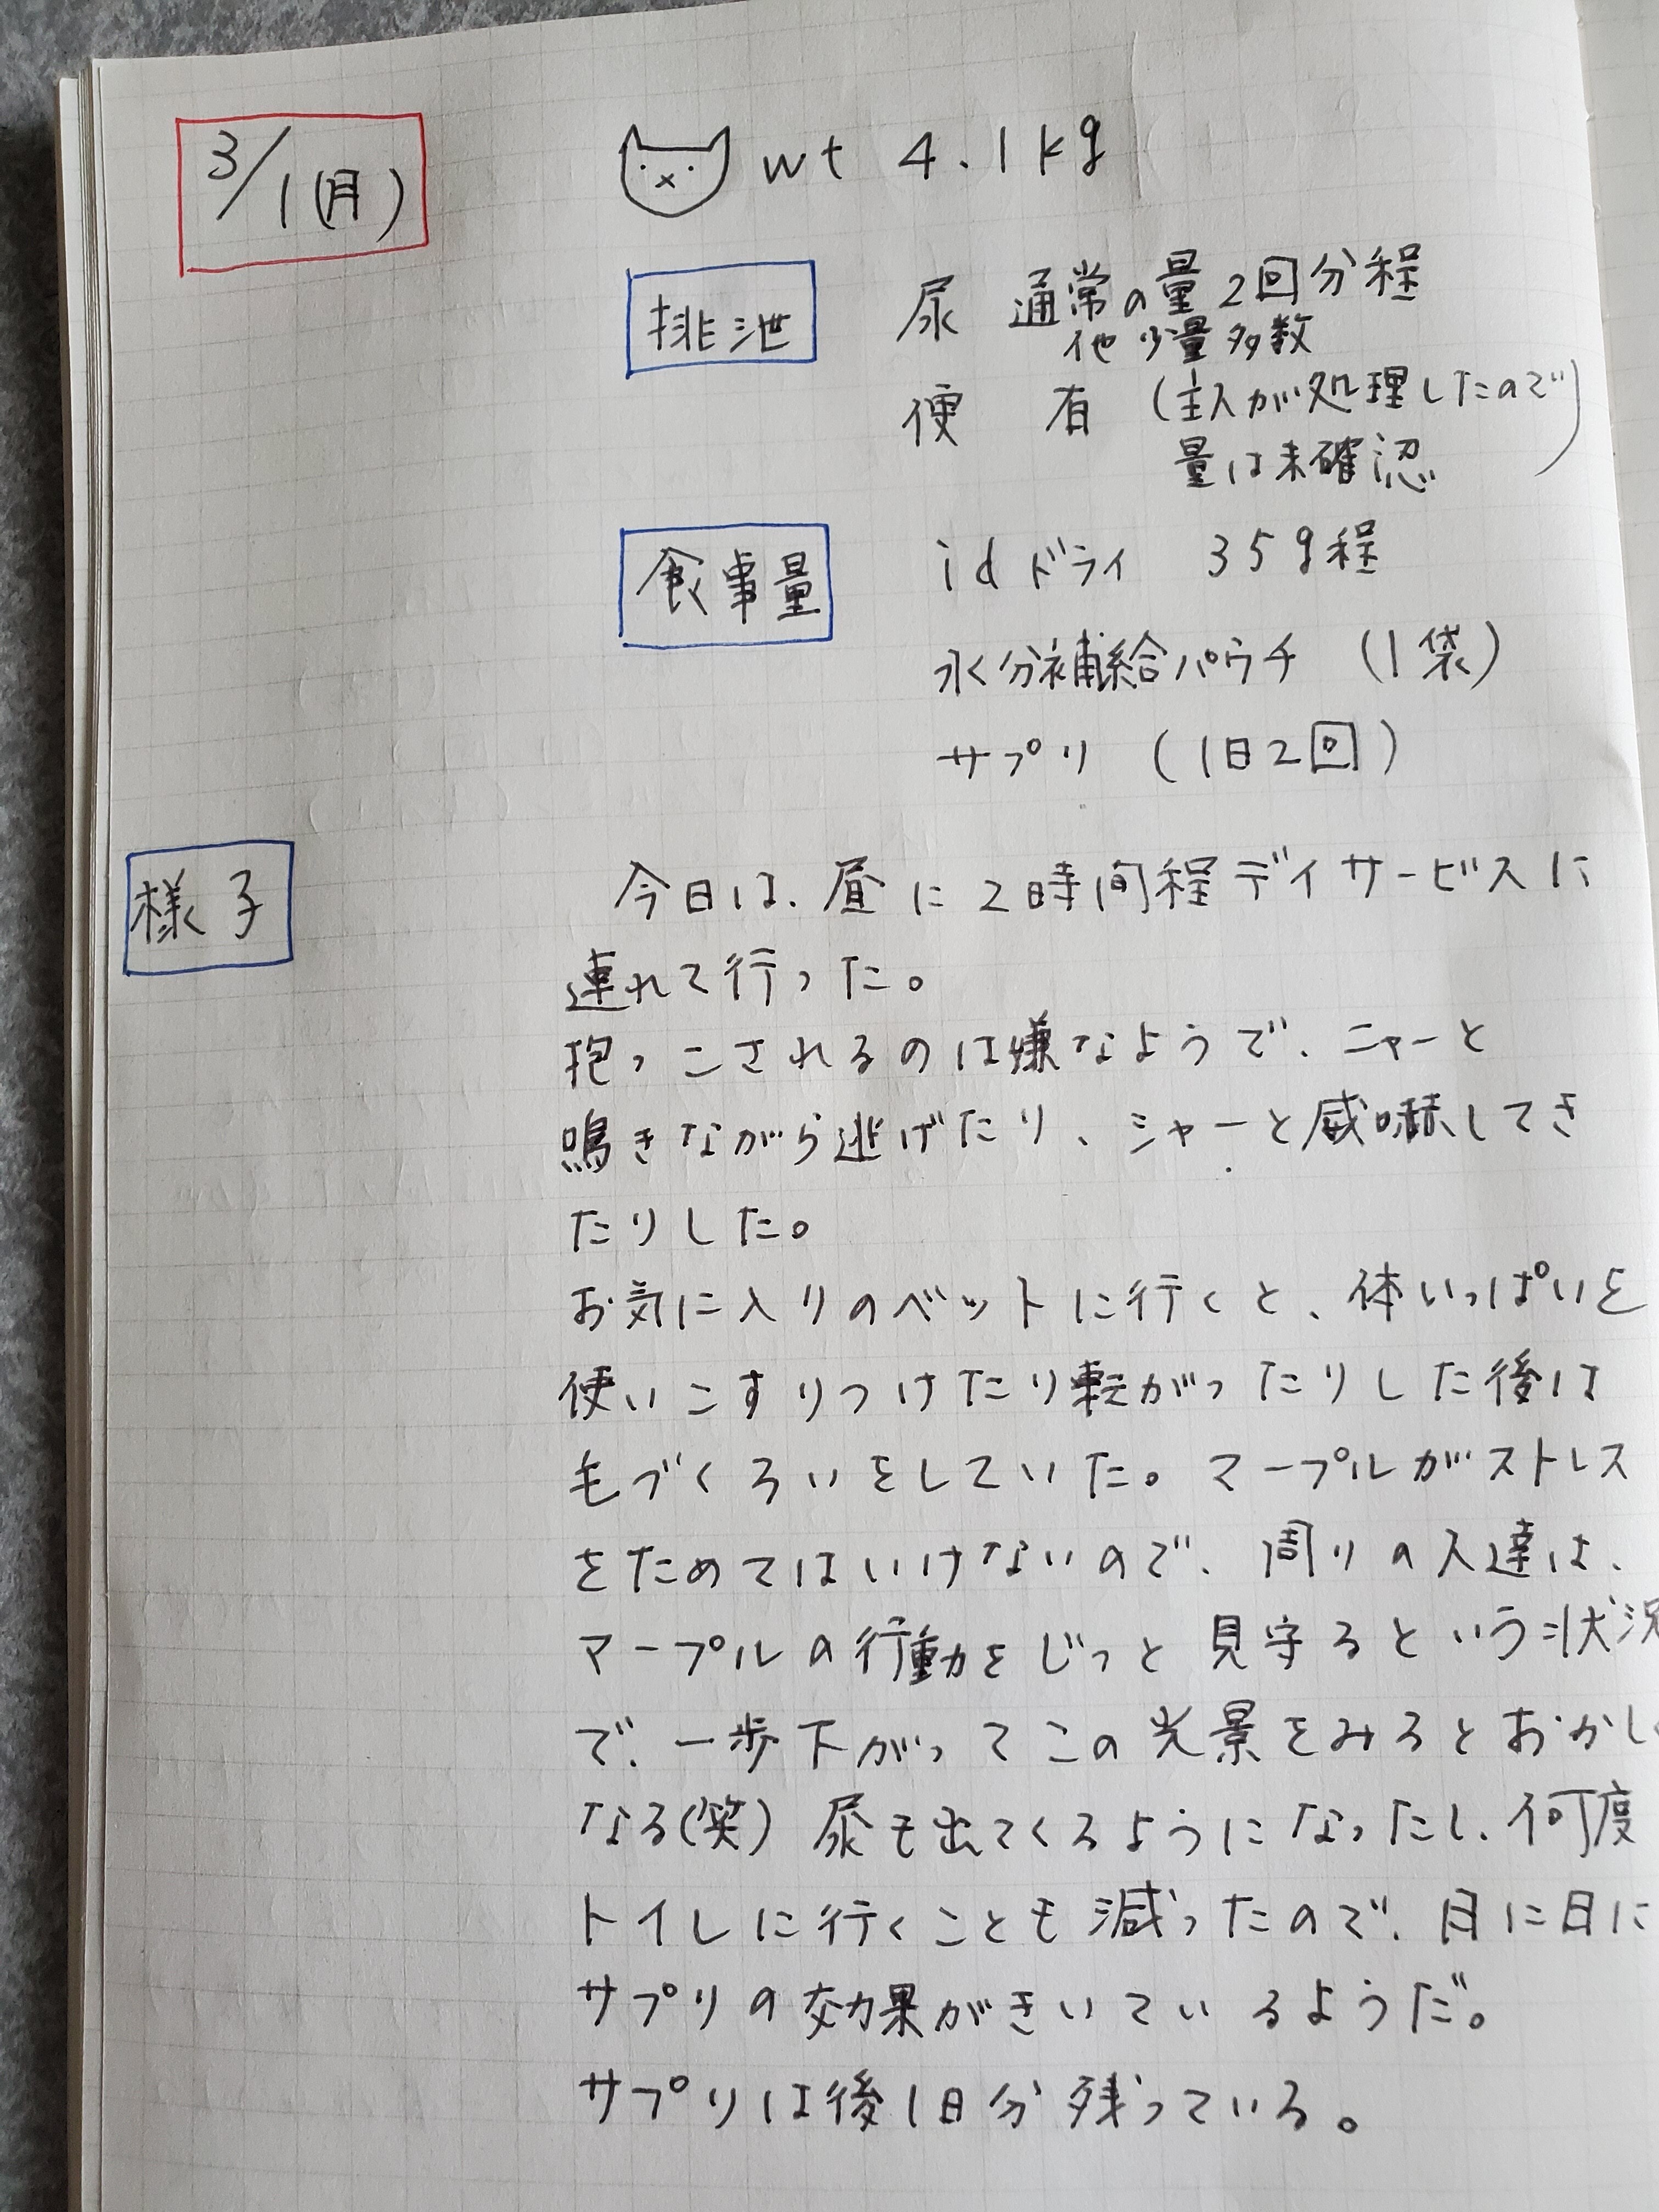 3/1(月)
wt 4.1kg
排泄
尿 通常の量2回分程
他少量多数
便 有 (主人が処理したので
量は未確認)
食事量
id ドライ 35g程
水分補給パウチ (1袋)
サプリ (1日2回)
様子
今日は、昼に2時間程デイサービスに
連れて行った。
抱っこされるのは嫌なようで、ニャーと
鳴きながら逃げたり、シャーと威嚇してき
たりした。
お気に入りのベットに行くと、体いっぱいを
使いこすりつけたり転がったりした後は
毛づくろいをしていた。マープルがストレス
をためてはいけないので、周りの人達は、
マープルの行動をじっと見守るという状況
で、一歩下がってこの光景をみるとおかしく
なる(笑) 尿も出てくるようになったし、何度
トイレに行くことも減ったので、日に日に
サプリの効果がきいているようだ。
サプリは後1日分残っている。